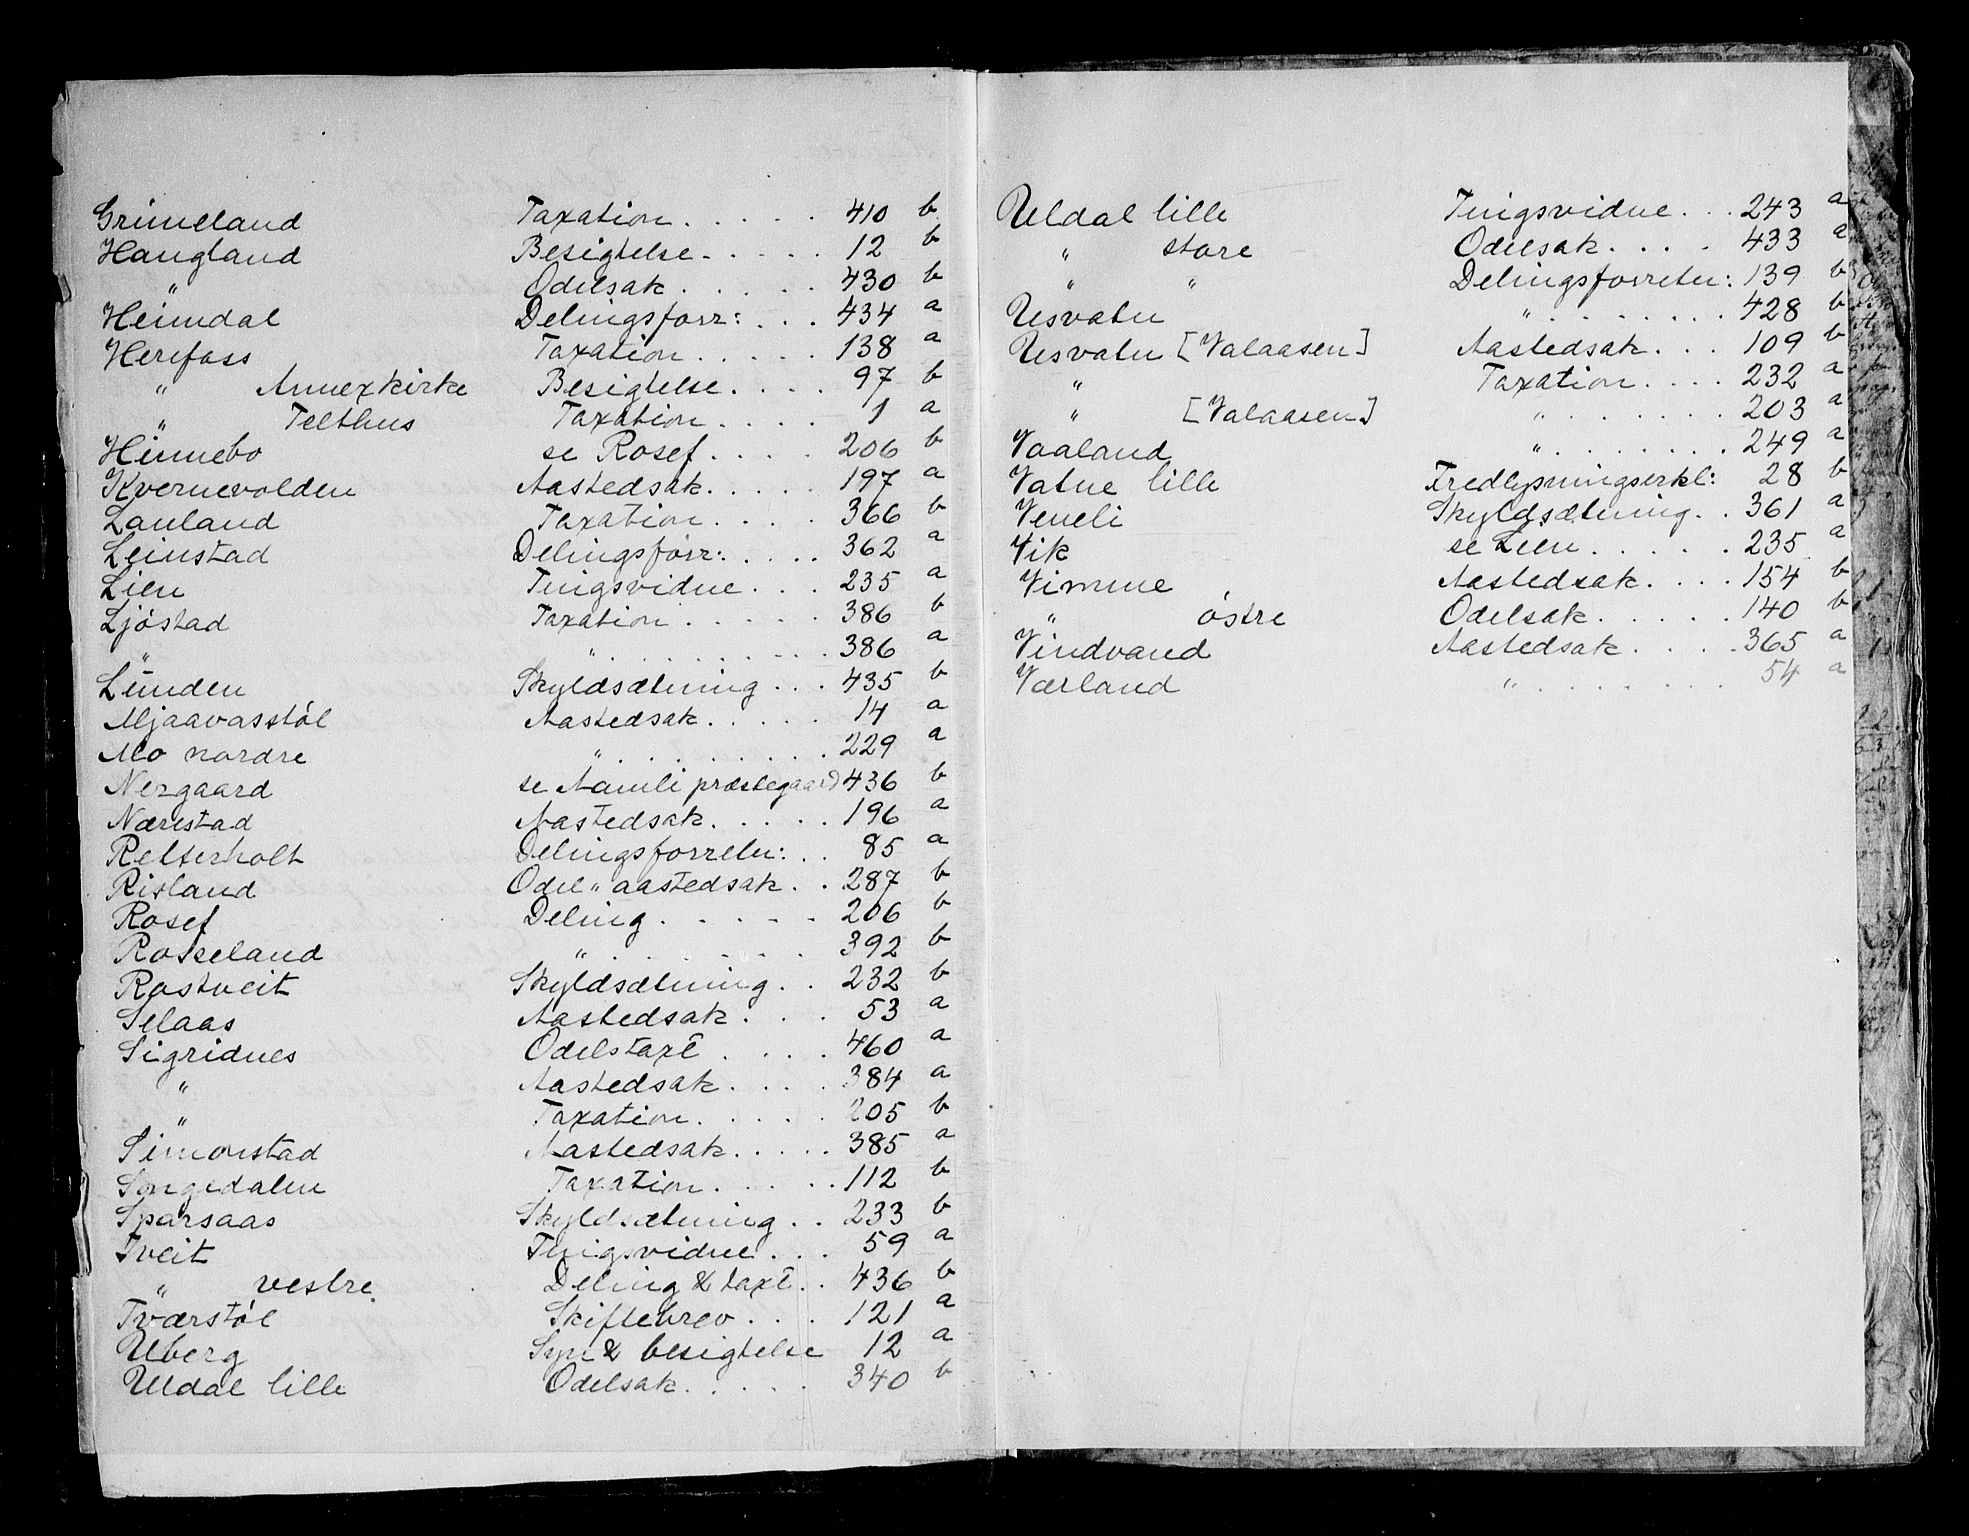 Grimeland Taxation . . . . . 410 b
Haugland Besigtelse . . . . . 12 b
" Odelsak . . . . . 430 b
Heimdal Delingsforr: . . . 434 a
Herefoss Taxation . . . . . 138 a
" Annexkirke Besigtelse . . . . 97 b
" Telthus Taxation . . . . 1 a
Hinnebo se Rosef . . . . 206 b
Kvernevolden Aastedsak . . . . 197 a
Lauland Taxation . . . . 366 b
Leinstad Delingsforr: . . . . 362 a
Lien Tingsvidne . . . 235 a
Ljöstad Taxation . . . . . 386 b
" " . . . . . . . . 386 a
Lunden Skyldsætning . . . 435 b
Mjaavasstöl Aastedsak . . . . . 14 a
Mo nordre " . . . . . . . . 229 a
Nergaard se Aamli præstegaard 436 b
Nærestad Aastedsak . . . . . 196 a
Retterholt Delingsforretn: . . 85 a
Risland Odel " aastedsak . . 287 b
Rosef Deling . . . . . 206 b
Rosseland " . . . . . . . 392 b
Rostveit Skyldsætning . . 232 b
Selaas Aastedsak . . . . 53 a
Sigridnes Odelstaxt . . . . 460 a
" Aastedsak . . . . 384 a
" Taxation . . . . . 205 b
Simonstad Aastedsak . . . . . 385 a
Songedalen Taxation . . . . . 112 b
Sparsaas Skyldsætning . . 233 b
Tveit Tingsvidne . . . 59 a
" vestre Deling & taxt . . 436 b
Tværstöl Skiftebrev . . . . 121 a
Uberg Syn & besigtelse 12 a
Uldal lille Odelsak . . . . . 340 b
Uldal lille Tingsvidne . . . 243 a
" store Odelsak . . . . 433 a
" " Delingsforretn: 139 b
Usvatn " . . . . . . . . 428 b
Usvatn [Valaasen] Aastedsak . . . 109 b
" Taxation . . . . 232 a
" [Valaasen] " . . . . . . . 203 a
Vaaland " . . . . . . . . 249 a
Vatne lille Fredlysningserkl: 28 b
Veneli Skyldsætning . . 361 a
Vik se Lien . . . . . 235 a
Vimme Aastedsak . . . . 154 b
" östre Odelsak . . . . . 140 b
Vindvand Aastedsak . . . . . 365 a
Værland " . . . . . . . . 54 a